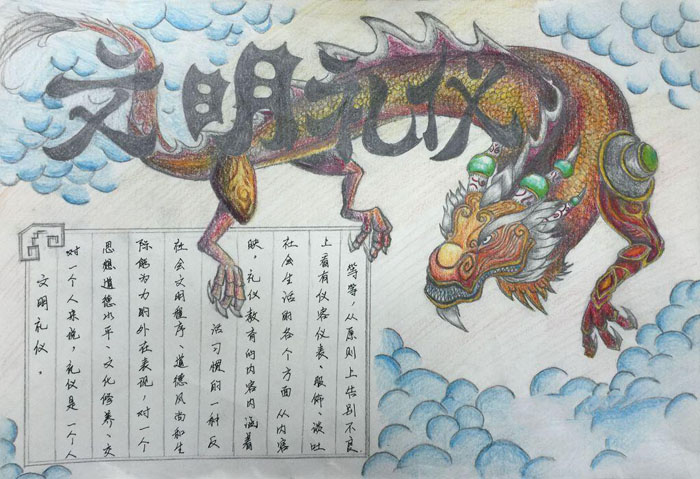 文明礼仪
文明礼仪。
对一个人来说，礼仪是一个人
思想道德水平、文化修养、交
际能为力的外在表现，对一个
社会文明程序、道德风尚和生
活习惯的一种反
映，礼仪教育的内容内涵着
社会生活的各个方面 从内容
上看有仪容仪表、服饰、谈吐
等等，从原则上告别不良